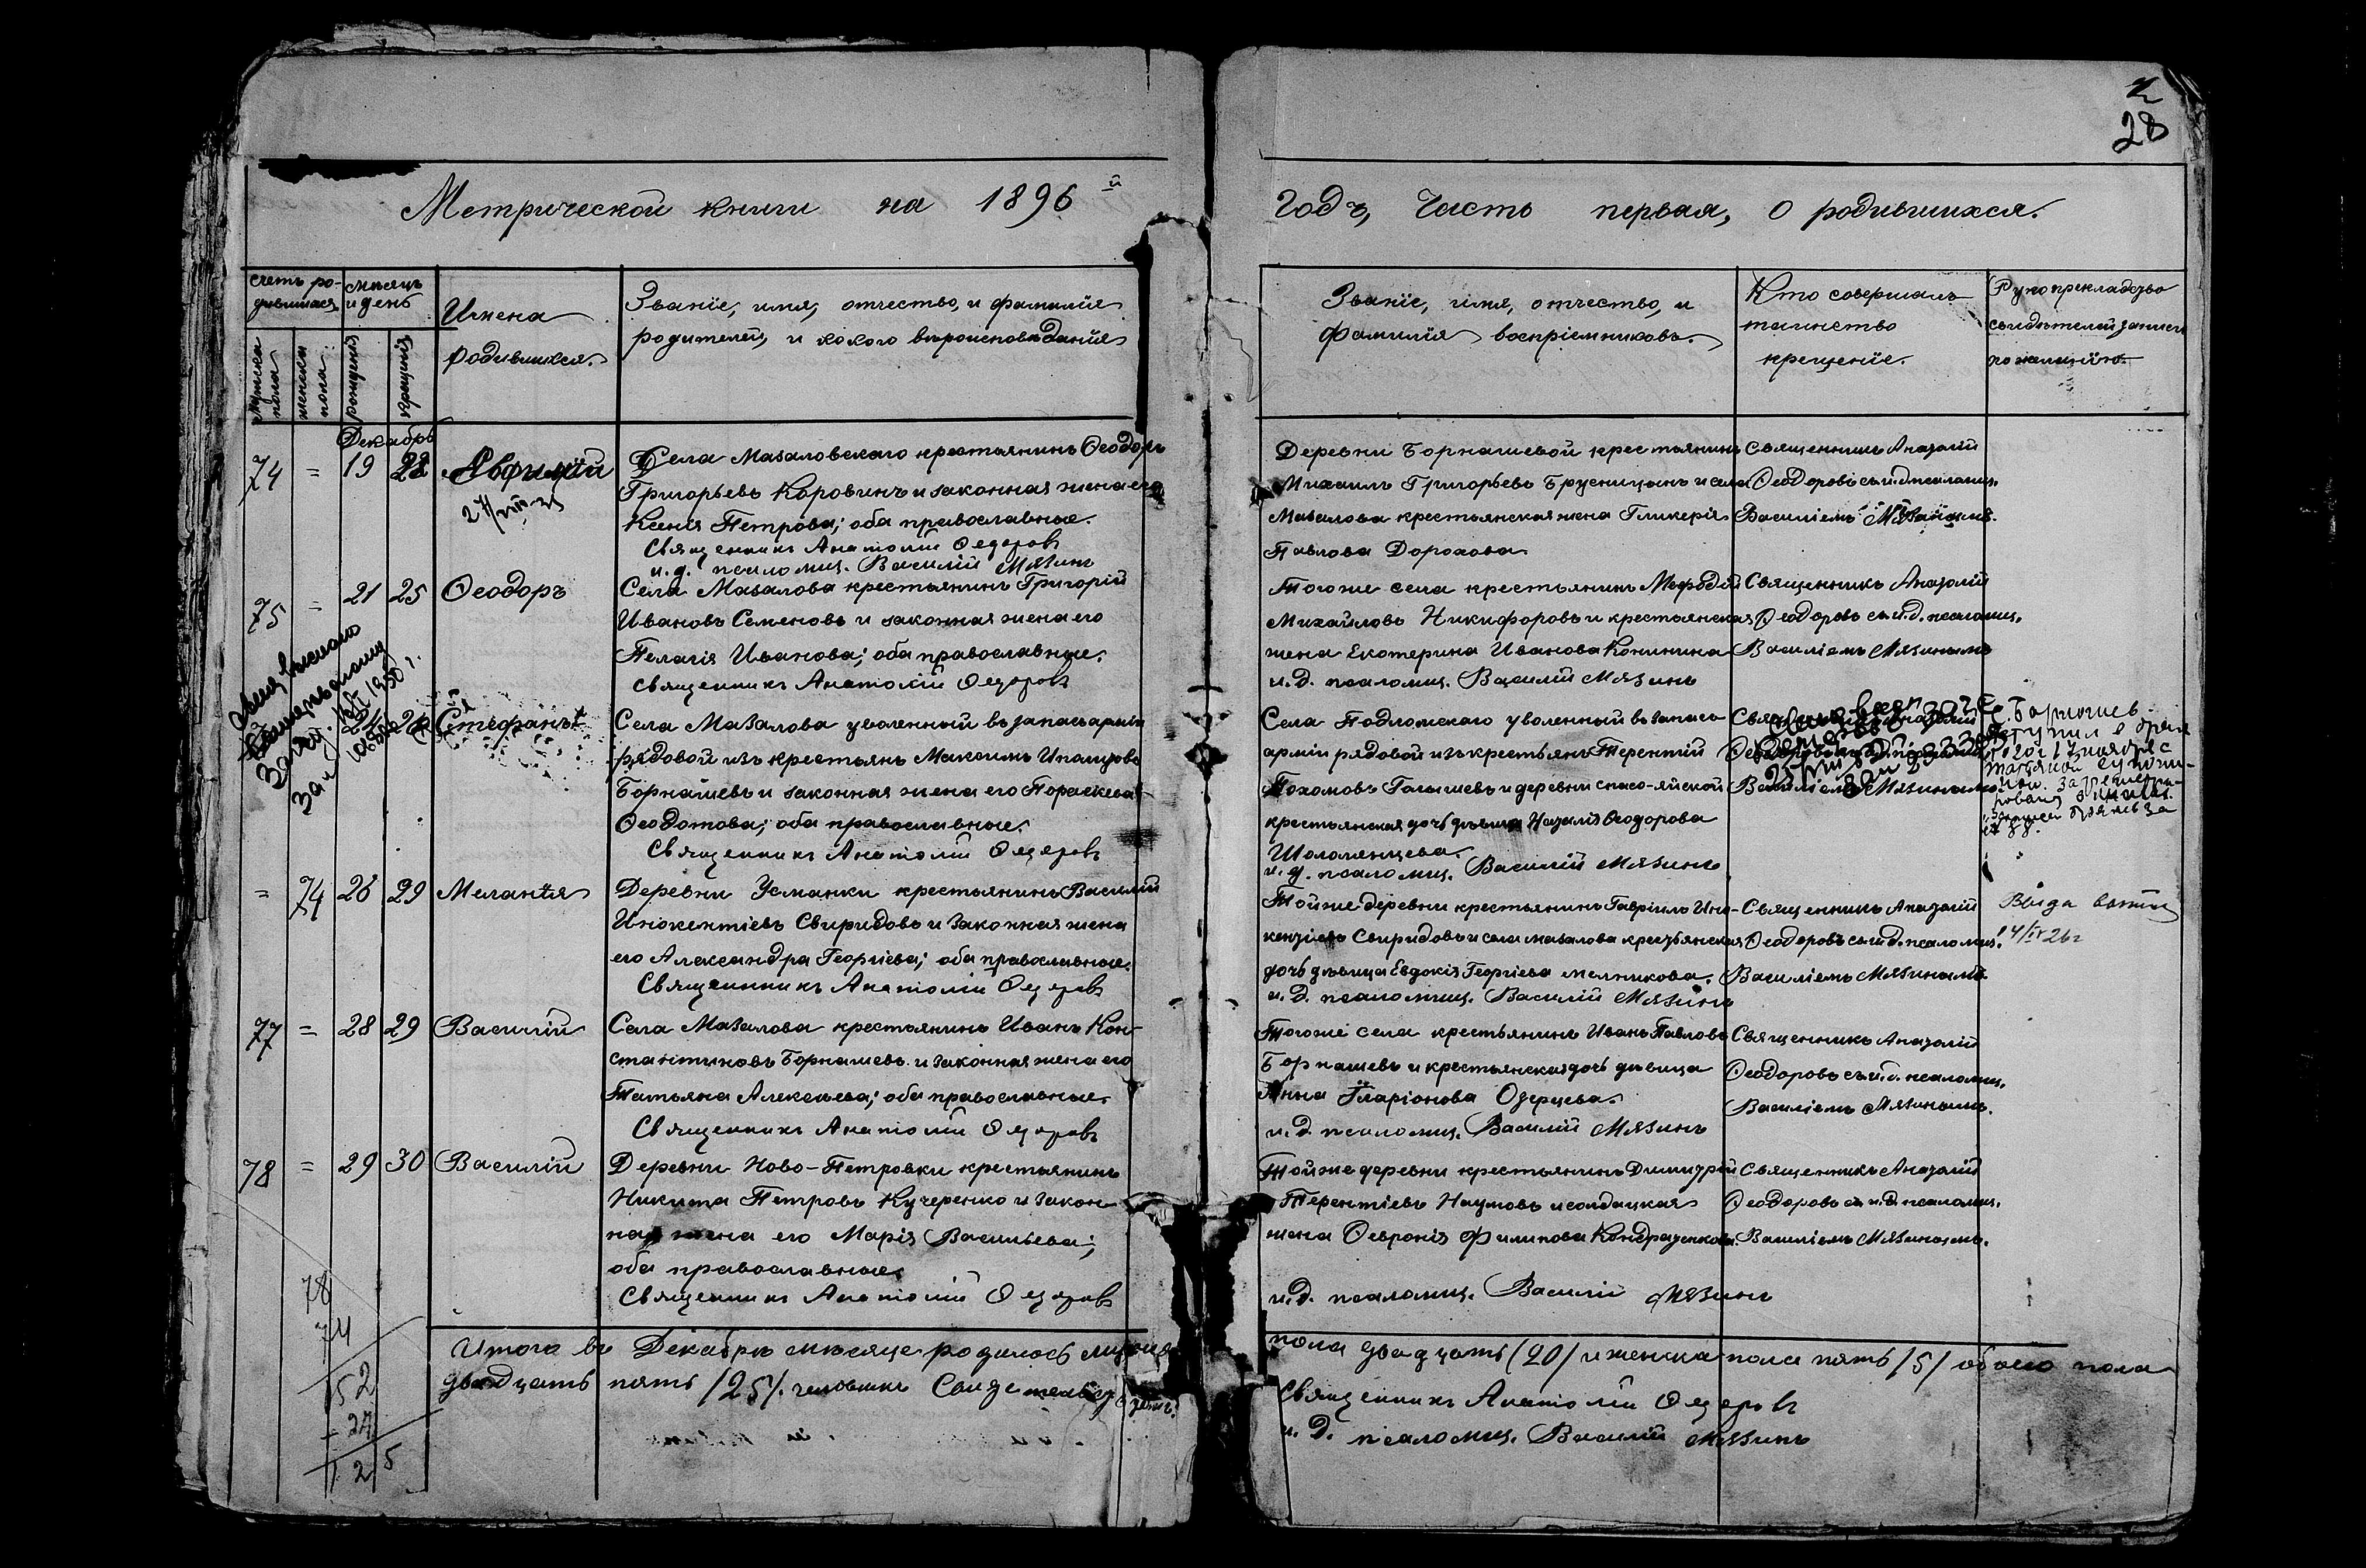 28
Метрической книги на 1896й
годъ, Часть первая, О родившихся.
Счетъ ро-
дившихся
мѣсяцъ
и день
Имена
родившихся.
Званіе, имя, отчество, и фамилія
родителей, и какого вѣроисповѣданія
мужска
пола
женска
пола
рожденія
крещенія
Званіе, имя, отчество, и
фамилія воспріемниковъ.
Кто совершалъ
таинство
крещеніе.
Рукоприкладство
свидѣтелей записи
по желанію.
Декабрь
74 = 19 22 Евфимій
27/VIII-31
Села Мазаловскаго крестьянинъ Ѳеодоръ
Григорьевъ Коровинъ и законная жена его
Ксенія Петрова; оба православные.
Священникъ Анатолій Ѳедоровъ
и. д. псаломщ. Василій Мязинъ
Деревни Борнашевой крестьянинъ
Михаилъ Григорьевъ Брусницынъ и села
Мазалова крестьянская жена Гликерія
Павлова Дорохова
Священникъ Анатолій
Ѳеодоровъ съ и. д. псаломщ.
Василіемъ Мязинымъ.
75 = 21 25 Ѳеодоръ
Села Мазалова крестьянинъ Григорій
Ивановъ Семеновъ и законная жена его
Пелагія Иванова; оба православные.
Священникъ Анатолій Ѳедоровъ
Того же села крестьянинъ Меѳодій
Михайловъ Никифоровъ и крестьянская
жена Екатерина Иванова Конинина
и. д. псаломщ. Василій Мязинъ
Священникъ Анатолій
Ѳеодоровъ съ и. д. псаломщ.
Василіемъ Мязинымъ
Стефанъ
Села Мазалова уволенный въ запасъ арміи
рядовой изъ крестьянъ Максимъ Ипатовъ
Борнашевъ и законная жена его Параскева
Ѳеодотова; оба православные.
Священникъ Анатолій Ѳедоровъ
Села Подломскаго уволенный въ запасъ
арміи рядовой изъ крестьянъ Терентій
Пахомовъ Галышевъ и деревни Спасо-яйской
крестьянская дочь дѣвица Наталія Ѳеодорова
Шоломенцева.
и. д. псаломщ. Василій Мязинъ
Василіемъ Мязинымъ
Борнашев
17 ноября с
= 74 26 29 Меланія
Деревни Усманки крестьянинъ Василій
Инокентіевъ Свиридовъ и законная жена
его Александра Георгіева; оба православные.
Священникъ Анатолій Ѳедоровъ
Той же деревни крестьянинъ Гавріилъ Ино-
кентіевъ Свиридовъ и села Мазалова крестьянская
дочь дѣвица Евдокія Георгіева Мельникова.
и. д. псаломщ. Василій Мязинъ
Священникъ Анатолій
Ѳеодоровъ съ и. д. псаломщ.
Василіемъ Мязинымъ
14/IV 26 г
77 = 28 29 Василій
Села Мазалова крестьянинъ Иванъ Кон-
стантиновъ Борнашевъ и законная жена его
Татьяна Алексѣева; оба православные.
Священникъ Анатолій Ѳедоровъ
Того же села крестьянинъ Иванъ Павловъ
Борнашевъ и крестьянская дочь дѣвица
Анна Іларіонова Озерцева.
и. д. псаломщ. Василій Мязинъ
Священникъ Анатолій
Ѳеодоровъ съ и. д. псаломщ.
Василіемъ Мязинымъ.
78 = 29 30 Василій
Деревни Ново-Петровки крестьянинъ
Никита Петровъ Кучеренко и закон-
ная жена его Марія Васильева;
оба православные.
Священникъ Анатолій Ѳедоровъ
Той же деревни крестьянинъ Димитрій
Терентіевъ Наумовъ и солдатская
жена Ѳевронія Филипова Кондратенкова.
и. д. псаломщ. Василій Мязинъ
Священникъ Анатолій
Ѳеодоровъ съ и. д. псаломщ.
Василіемъ Мязинымъ.
78
74
152
- 27
125
Итого въ Декабрѣ мѣсяцѣ родилось мужска
пола двадцать /20/ и женска пола пять /5/ обоего пола
двадцать пять /25/ человѣкъ
Священникъ Анатолій Ѳедоровъ
и. д. псаломщ. Василій Мязинъ